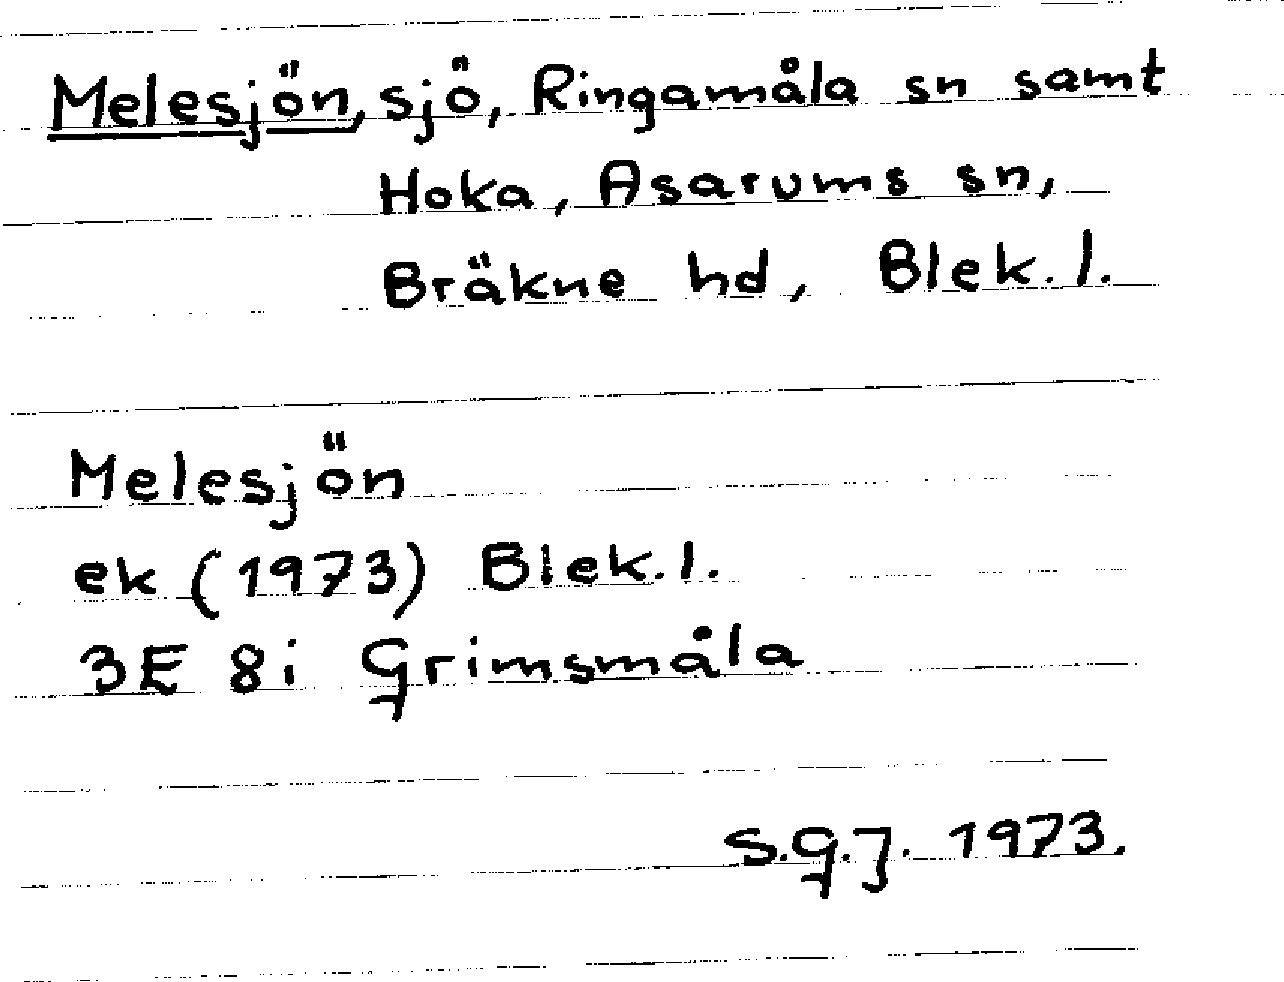 Melesjön, sjö, Ringamåla sn samt
Hoka, Asarums sn,
Bräkne hd, Blek. l.
Melesjön
ek (1973) Blek. l.
3E 8i Grimsmåla
S.G.J. 1973.